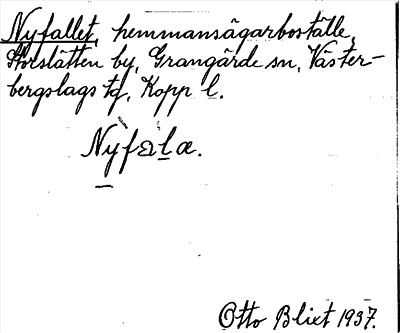 Nyfallet, hemmansägarboställe,
Storslätten by, Grangärde sn, Väster-
bergslags tg, Kopp l.
Nyfala.
Otto Blixt 1937.